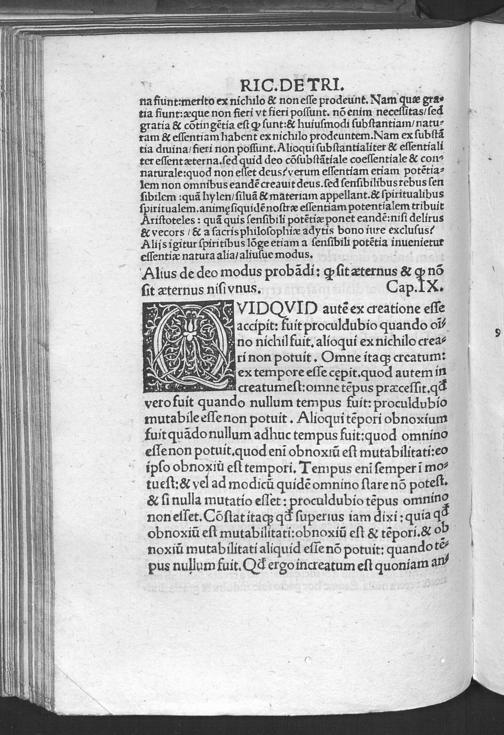 RIC. DE TRI.
na fiunt: merito ex nichilo & non esse prodeunt. Nam quæ gra-
tia fiunt: æque non fieri vt fieri possunt. nõ enim necessitas/ sed
gratia & cõtingẽtia est ꝙ sunt: & huiusmodi substantiam/ natu-
ram & essentiam habent ex nichilo prodeuntem. Nam ex substã
tia diuina/ fieri non possunt. Alioqui substantialiter & essentiali
ter essent æterna. sed quid deo cõsubstãtiale coessentiale & con-
naturale: quod non esset deus? verum essentiam etiam potẽtia-
lem non omnibus eandẽ creauit deus. sed sensibilibus rebus sen
sibilem: quã hylen/ siluã & materiam appellant. & spiritualibus
spiritualem. animęsiquidẽ nostræ essentiam potentialem tribuit
Aristoteles: quã quis sensibili potẽtiæ ponet eandẽ: nisi delirus
& vecors/ & a sacris philosophiæ adytis bono iure exclusus?
Alijs igitur spiritibus lõge etiam a sensibili potẽtia inuenietur
essentiæ natura alia/ aliusue modus.
Alius de deo modus probãdi: ꝙ sit æternus & ꝙ nõ
sit æternus nisi vnus. Cap. IX.
QVIDQVID autẽ ex creatione esse
accipit: fuit proculdubio quando oĩ-
no nichil fuit. alioqui ex nichilo crea-
ri non potuit. Omne itaqꝫ creatum:
ex tempore esse cępit. quod autem in
creatum est: omne tẽpus præcessit. qđ
vero fuit quando nullum tempus fuit: proculdubio
mutabile esse non potuit. Alioqui tẽpori obnoxium
fuit quãdo nullum adhuc tempus fuit: quod omnino
esse non potuit. quod enĩ obnoxiũ est mutabilitati: eo
ipso obnoxiũ est tempori. Tempus enĩ semper ĩ mo-
tu est: & vel ad modicũ quidẽ omnino stare nõ potest.
& si nulla mutatio esset: proculdubio tẽpus omnino
non esset. Cõstat itaqꝫ qđ superius iam dixi: quia qđ
obnoxiũ est mutabilitati: obnoxiũ est & tẽpori. & ob
noxiũ mutabilitati aliquid esse nõ potuit: quando tẽ-
pus nullum fuit. Qđ ergo increatum est quoniam an-